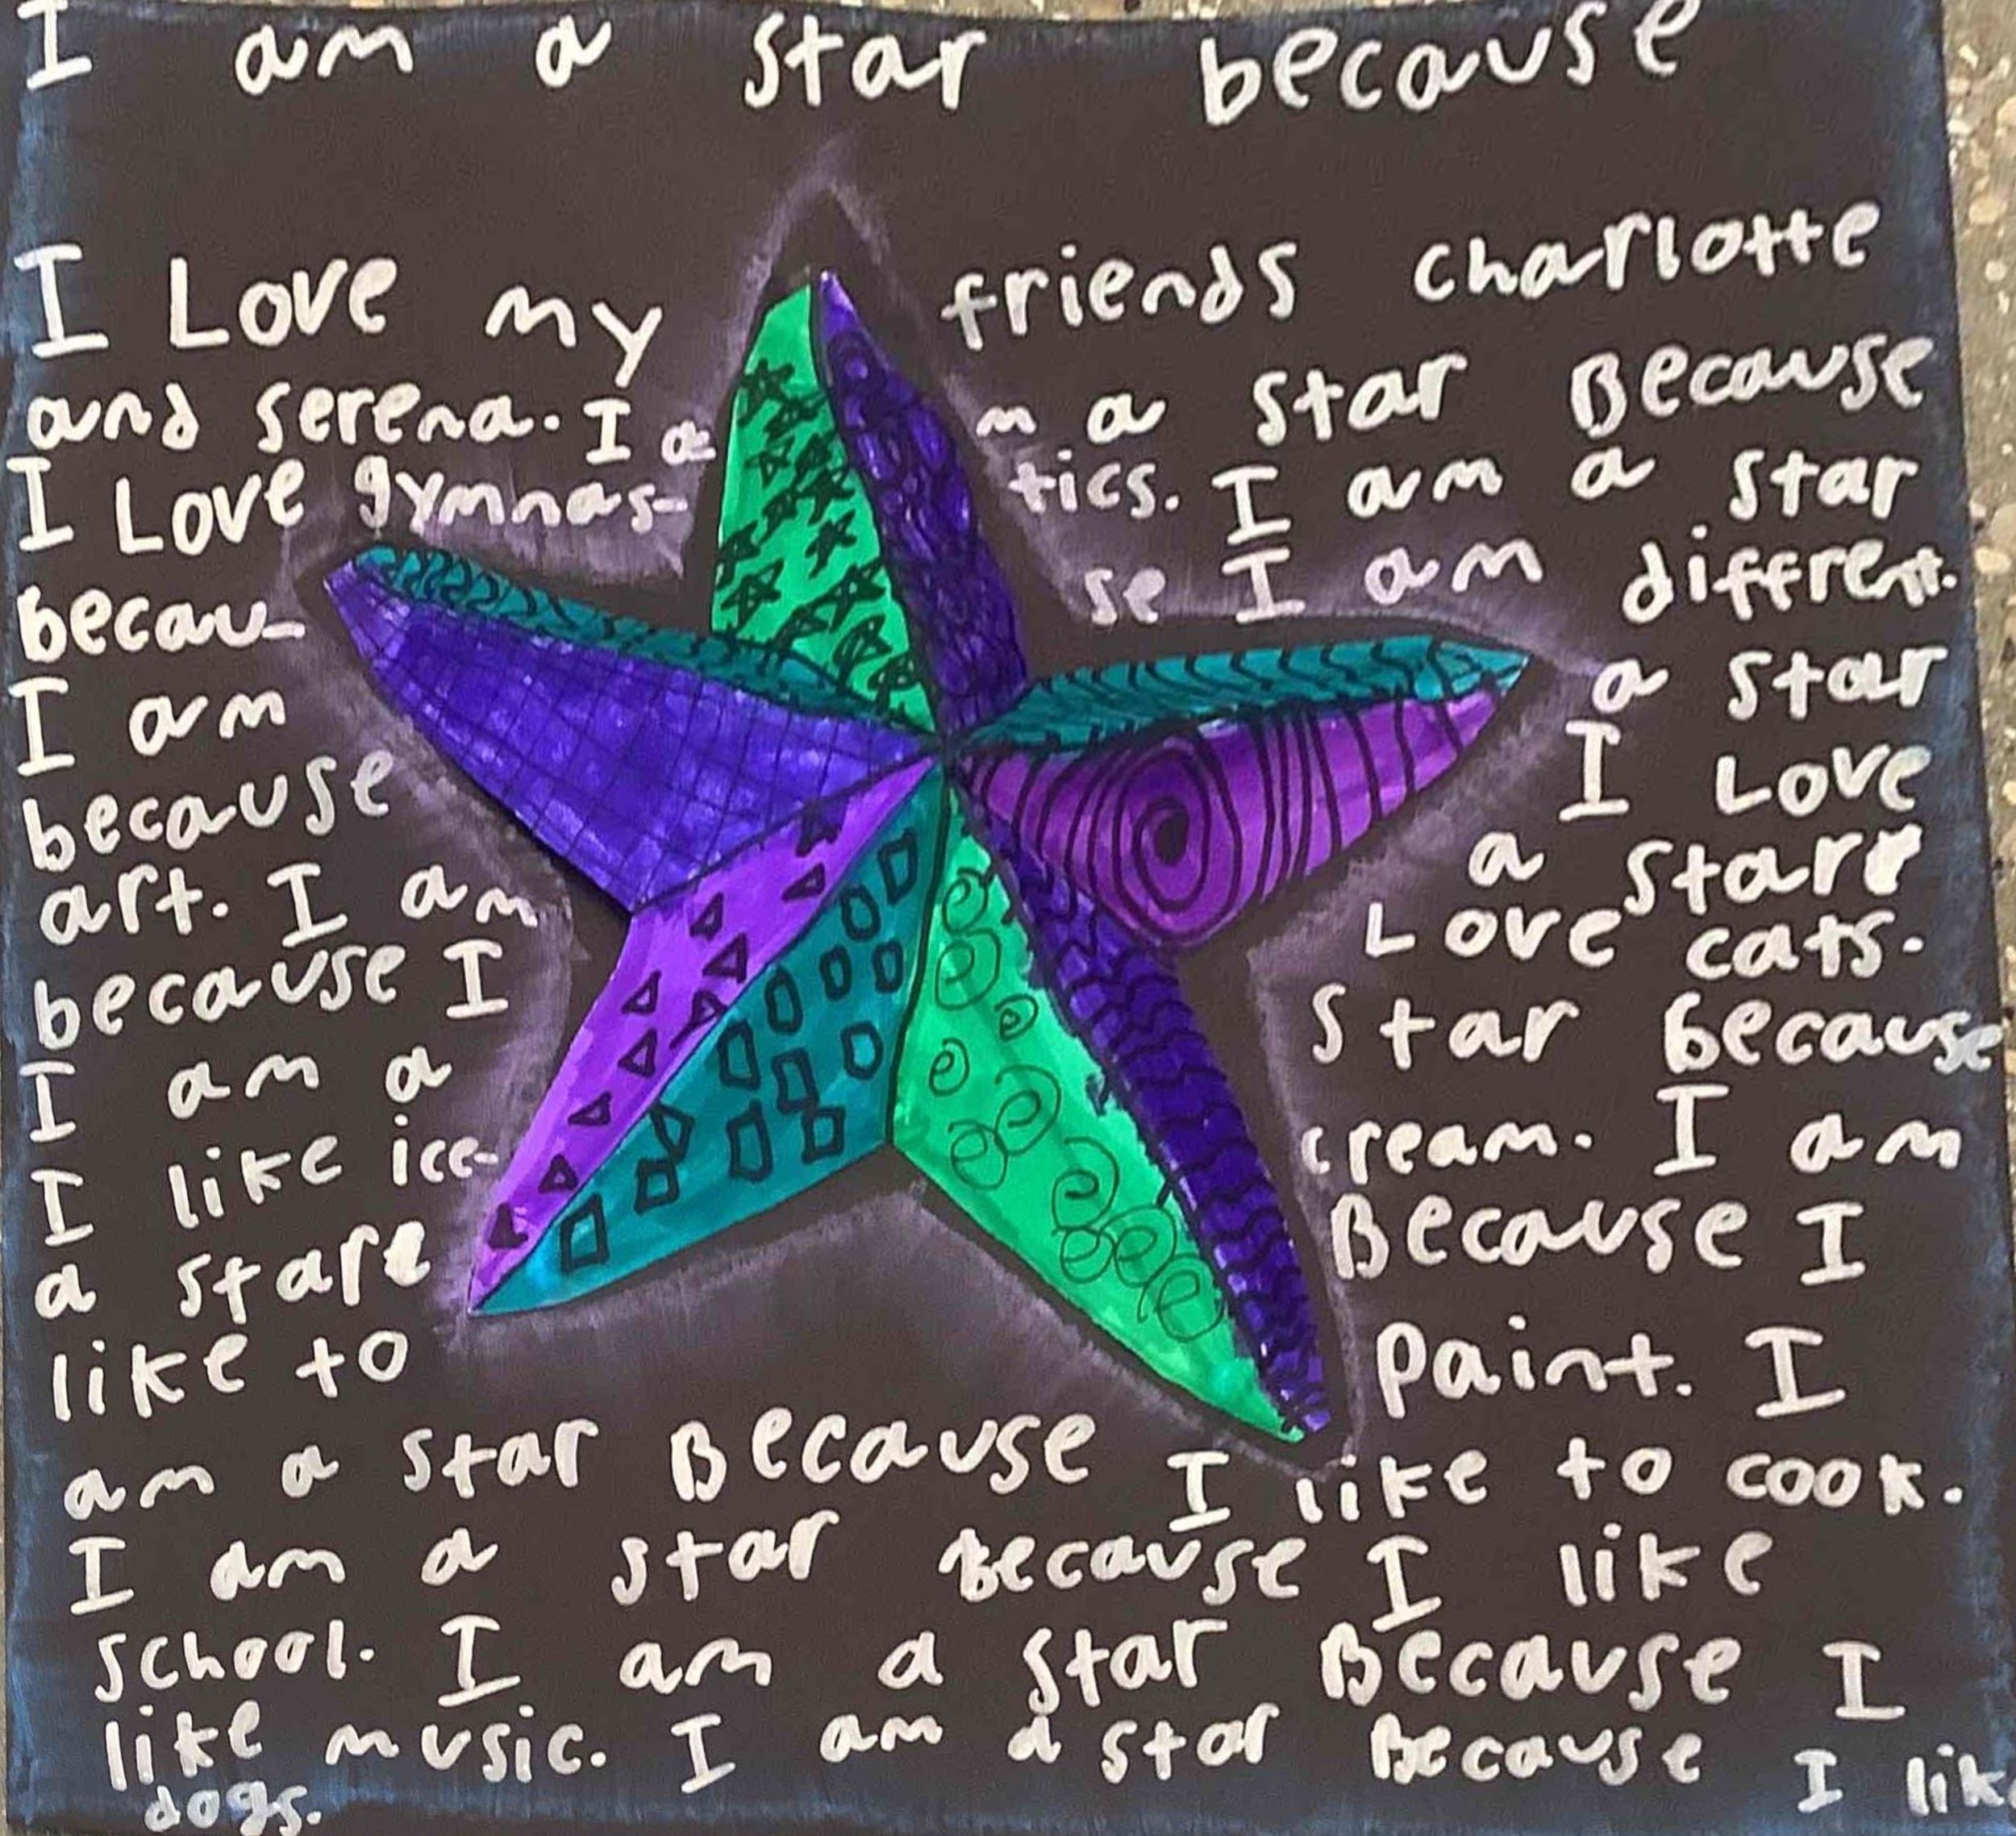 I am a star because
I Love my friends charlotte
and serena. I am a star Because
I Love gymnas-tics. I am a star
becau-se I am diffrent.
I am a star
because I Love
art. I am a starr
because I Love cats.
I am a star because
I like ice-cream. I am
a starr Because I
like to paint. I
am a star Because I like to cook.
I am a star because I like
school. I am a star Because I
like music. I am a star Because I lik
dogs.